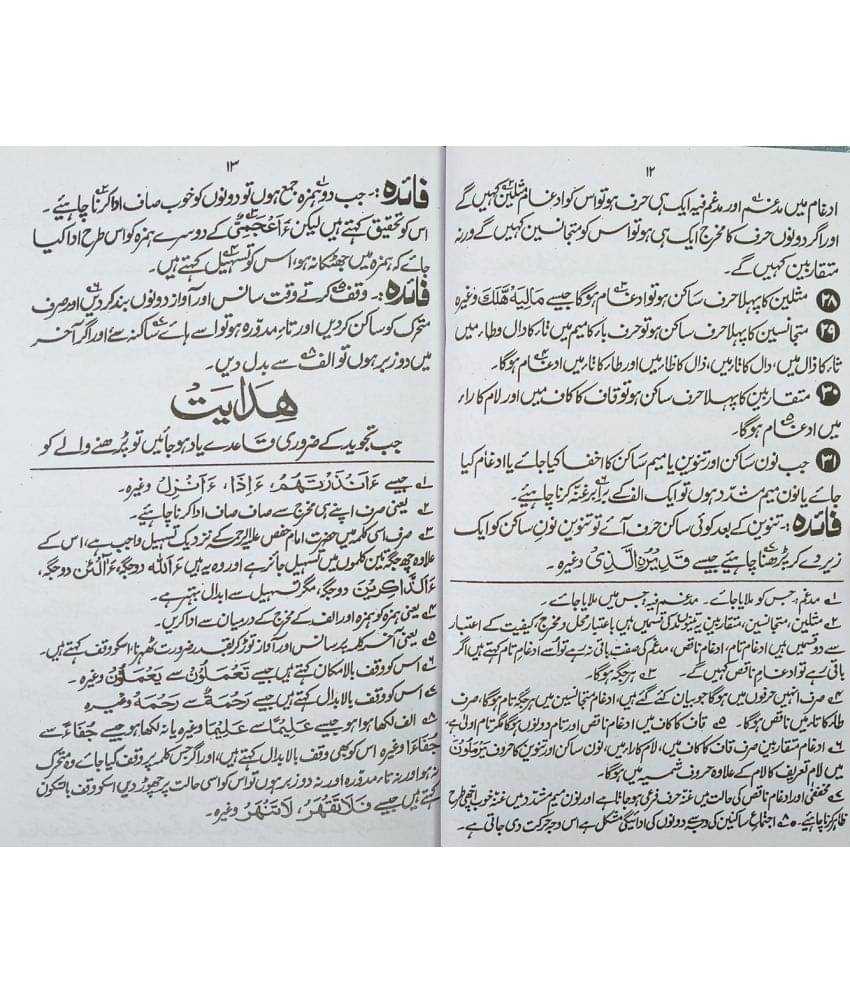 ۱۲
ادغام میں مدغم اور مدغم فیہ ایک ہی حرف ہو تو اس کو ادغام مثلین کہیں گے
اور اگر دونوں حرف کا مخرج ایک ہی ہو تو اس کو متجانسین کہیں گے ورنہ
متقاربین کہیں گے۔
۲۸ مثلین کا پہلا حرف ساکن ہو تو ادغام ہوگا جیسے مَالِيَهْ هَّلَكَ وغیرہ
۲۹ متجانسین کا پہلا حرف ساکن ہو تو حرف بار کا میم میں تار کا دال و طاء میں
ثار کا ذال میں، دال کا تار میں، ذال کا ظار میں اور طار کا تار میں ادغام ہوگا۔
۳۰ متقاربین کا پہلا حرف ساکن ہو تو قاف کا کاف میں اور لام کا راء
میں ادغام ہوگا۔
۳۱ جب نون ساکن اور تنوین یا میم ساکن کا اخفا کیا جائے یا ادغام کیا
جائے یا نون میم مشدد ہوں تو ایک الف کے برابر غنہ کرنا چاہئے۔
فائدہ :۔ تنوین کے بعد کوئی ساکن حرف آئے تو تنوین نون ساکن کو ایک
زیر دے کر پڑھنا چاہئے جیسے قَدِيْرُنِ الَّذِىْ وغیرہ۔
۱ مدغم، جس کو ملایا جائے۔ مدغم فیہ جس میں ملایا جائے۔
۲ مثلین، متجانسین، متقاربین یہ تینوں مُدغم کی قسمیں ہیں باعتبار محل و مخرج، کیفیت کے اعتبار
سے دو قسمیں ہیں ادغام تام، ادغام ناقص، مدغم کی صفت باقی نہ رہے تو اُسے ادغام تام کہتے ہیں اگر
باقی رہے تو ادغام ناقص کہیں گے۔ ۳ ہر جگہ ہوگا۔
۴ صرف انہیں حرفوں میں ہوگا جو بیان کئے گئے ہیں، ادغام متجانسین میں ہر جگہ تام ہوگا، صرف
طار کا تار میں ناقص ہوگا۔ ۵ قاف کا کاف میں ادغام ناقص اور تام دونوں ہوگا مگر تام اولیٰ ہے۔
۶ ادغام متقاربین صرف قاف کا کاف میں، لام کا رار میں، نون ساکن اور تنوین کا حروف یَرْمَلُوْنَ
میں لام تعریف کا لام کے علاوہ حروف شمسیہ میں ہوگا۔
۷ مخفٰی اور ادغام ناقص کی حالت میں غنہ حرف فرعی ہو جاتا ہے اور نون میم مشدد میں غنہ خوب اچھی طرح
ظاہر کرنا چاہئے۔ ۸ اجتماع ساکنین کی وجہ سے دونوں کی ادائیگی مشکل ہے اس وجہ حرکت دی جاتی ہے۔
۱۳
فائدہ :۔ جب دو ہمزہ جمع ہوں تو دونوں کو خوب صاف ادا کرنا چاہئے۔
اس کو تحقیق کہتے ہیں لیکن ءَاَعْجَمِىٌّ کے دوسرے ہمزہ کو اس طرح ادا کیا
جائے کہ ہمزہ میں جھٹکا نہ ہو، اس کو تسہیل کہتے ہیں۔
فائدہ :۔ وقف کرتے وقت سانس اور آواز دونوں بند کردیں اور حرف
متحرک کو ساکن کردیں اور تاءِ مدوّرہ ہو تو اسے ہائے ساکنہ سے اور اگر آخر
میں دو زبر ہوں تو الف سے بدل دیں۔
ھدایت
جب تجوید کے ضروری قاعدے یاد ہو جائیں تو پڑھنے والے کو
۱ جیسے ءَاَنْذَرْتَهُمْ، ءَاِذَا، ءَاُنْزِلَ وغیرہ۔
۲ یعنی صرف اپنے ہی مخرج سے صاف صاف ادا کرنا چاہئے۔
۳ صرف اسی کلمہ میں حضرت امام حفص علیہ الرحمہ کے نزدیک تسہیل واجب ہے، اس کے
علاوہ چھ جگہ تین کلموں میں تسہیل جائز ہے اور وہ یہ ہیں ءَآللهُ دو جگہ، ءَآلْئٰنَ دو جگہ،
ءَآلذَّاكِرِيْنَ دو جگہ، مگر تسہیل سے ابدال بہتر ہے۔
۴ یعنی ہمزہ کو ہمزہ اور الف کے مخرج کے درمیان سے ادا کریں۔
۵ یعنی آخر کلمہ پر سانس اور آواز توڑ کر بقدر ضرورت ٹھہرنا، اسکو وقف کہتے ہیں۔
۶ اس کو وقف بالاسکان کہتے ہیں جیسے تَعْمَلُوْنَ سے يَعْمَلُوْنْ وغیرہ۔
۷ اس کو وقف بالابدال کہتے ہیں جیسے رَحْمَةٌ سے رَحْمَهْ وغیرہ
۸ الف لکھا ہوا ہو جیسے عَلِيْمًا سے عَلِيْمَا وغیرہ یا نہ لکھا ہو جیسے جُفَاءً سے
جُفَاءَا وغیرہ اس کو بھی وقف بالابدال کہتے ہیں، اور اگر جس کلمہ پر وقف کیا جائے وہ متحرک
نہ ہو اور نہ تاء مدورہ اور نہ دو زبر ہوں تو اس کو اسی حالت پر چھوڑ دیں اسکو وقف بالسکون
کہتے ہیں جیسے فَلَا تَقْهَرْ، لَا تَنْهَرْ وغیرہ۔